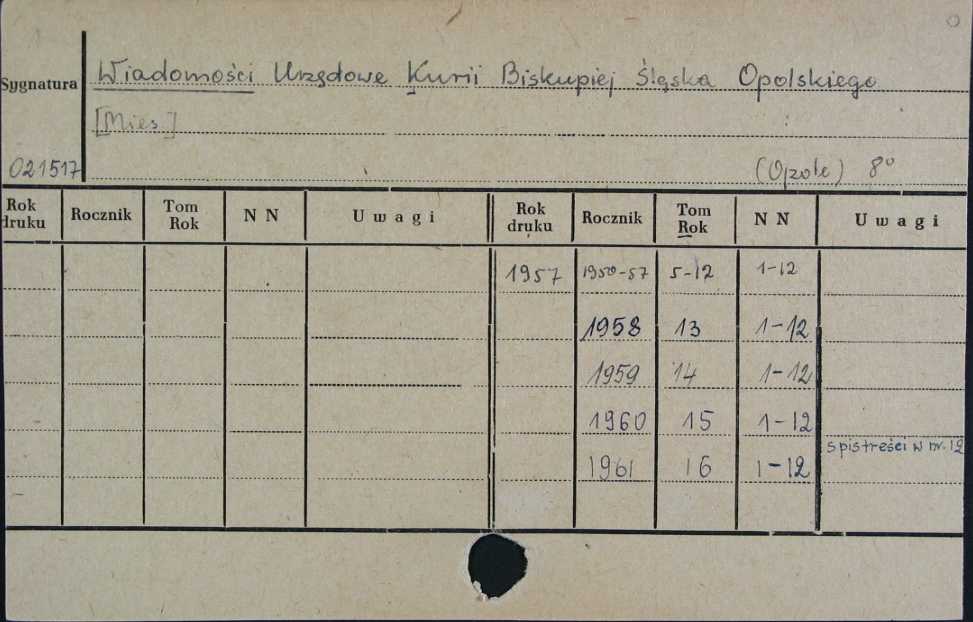 Sygnatura Wiadomości Urzędowe Kurii Biskupiej Śląska Opolskiego
[Mies]
021517 (Opole) 8°
Rok druku Rocznik Tom Rok N N Uwagi Rok druku Rocznik Tom Rok N N Uwagi
1957 1950-57 5-12 1-12
1958 13 1-12
1959 14 1-12
1960 15 1-12
spis treści w nr. 12
1961 16 1-12